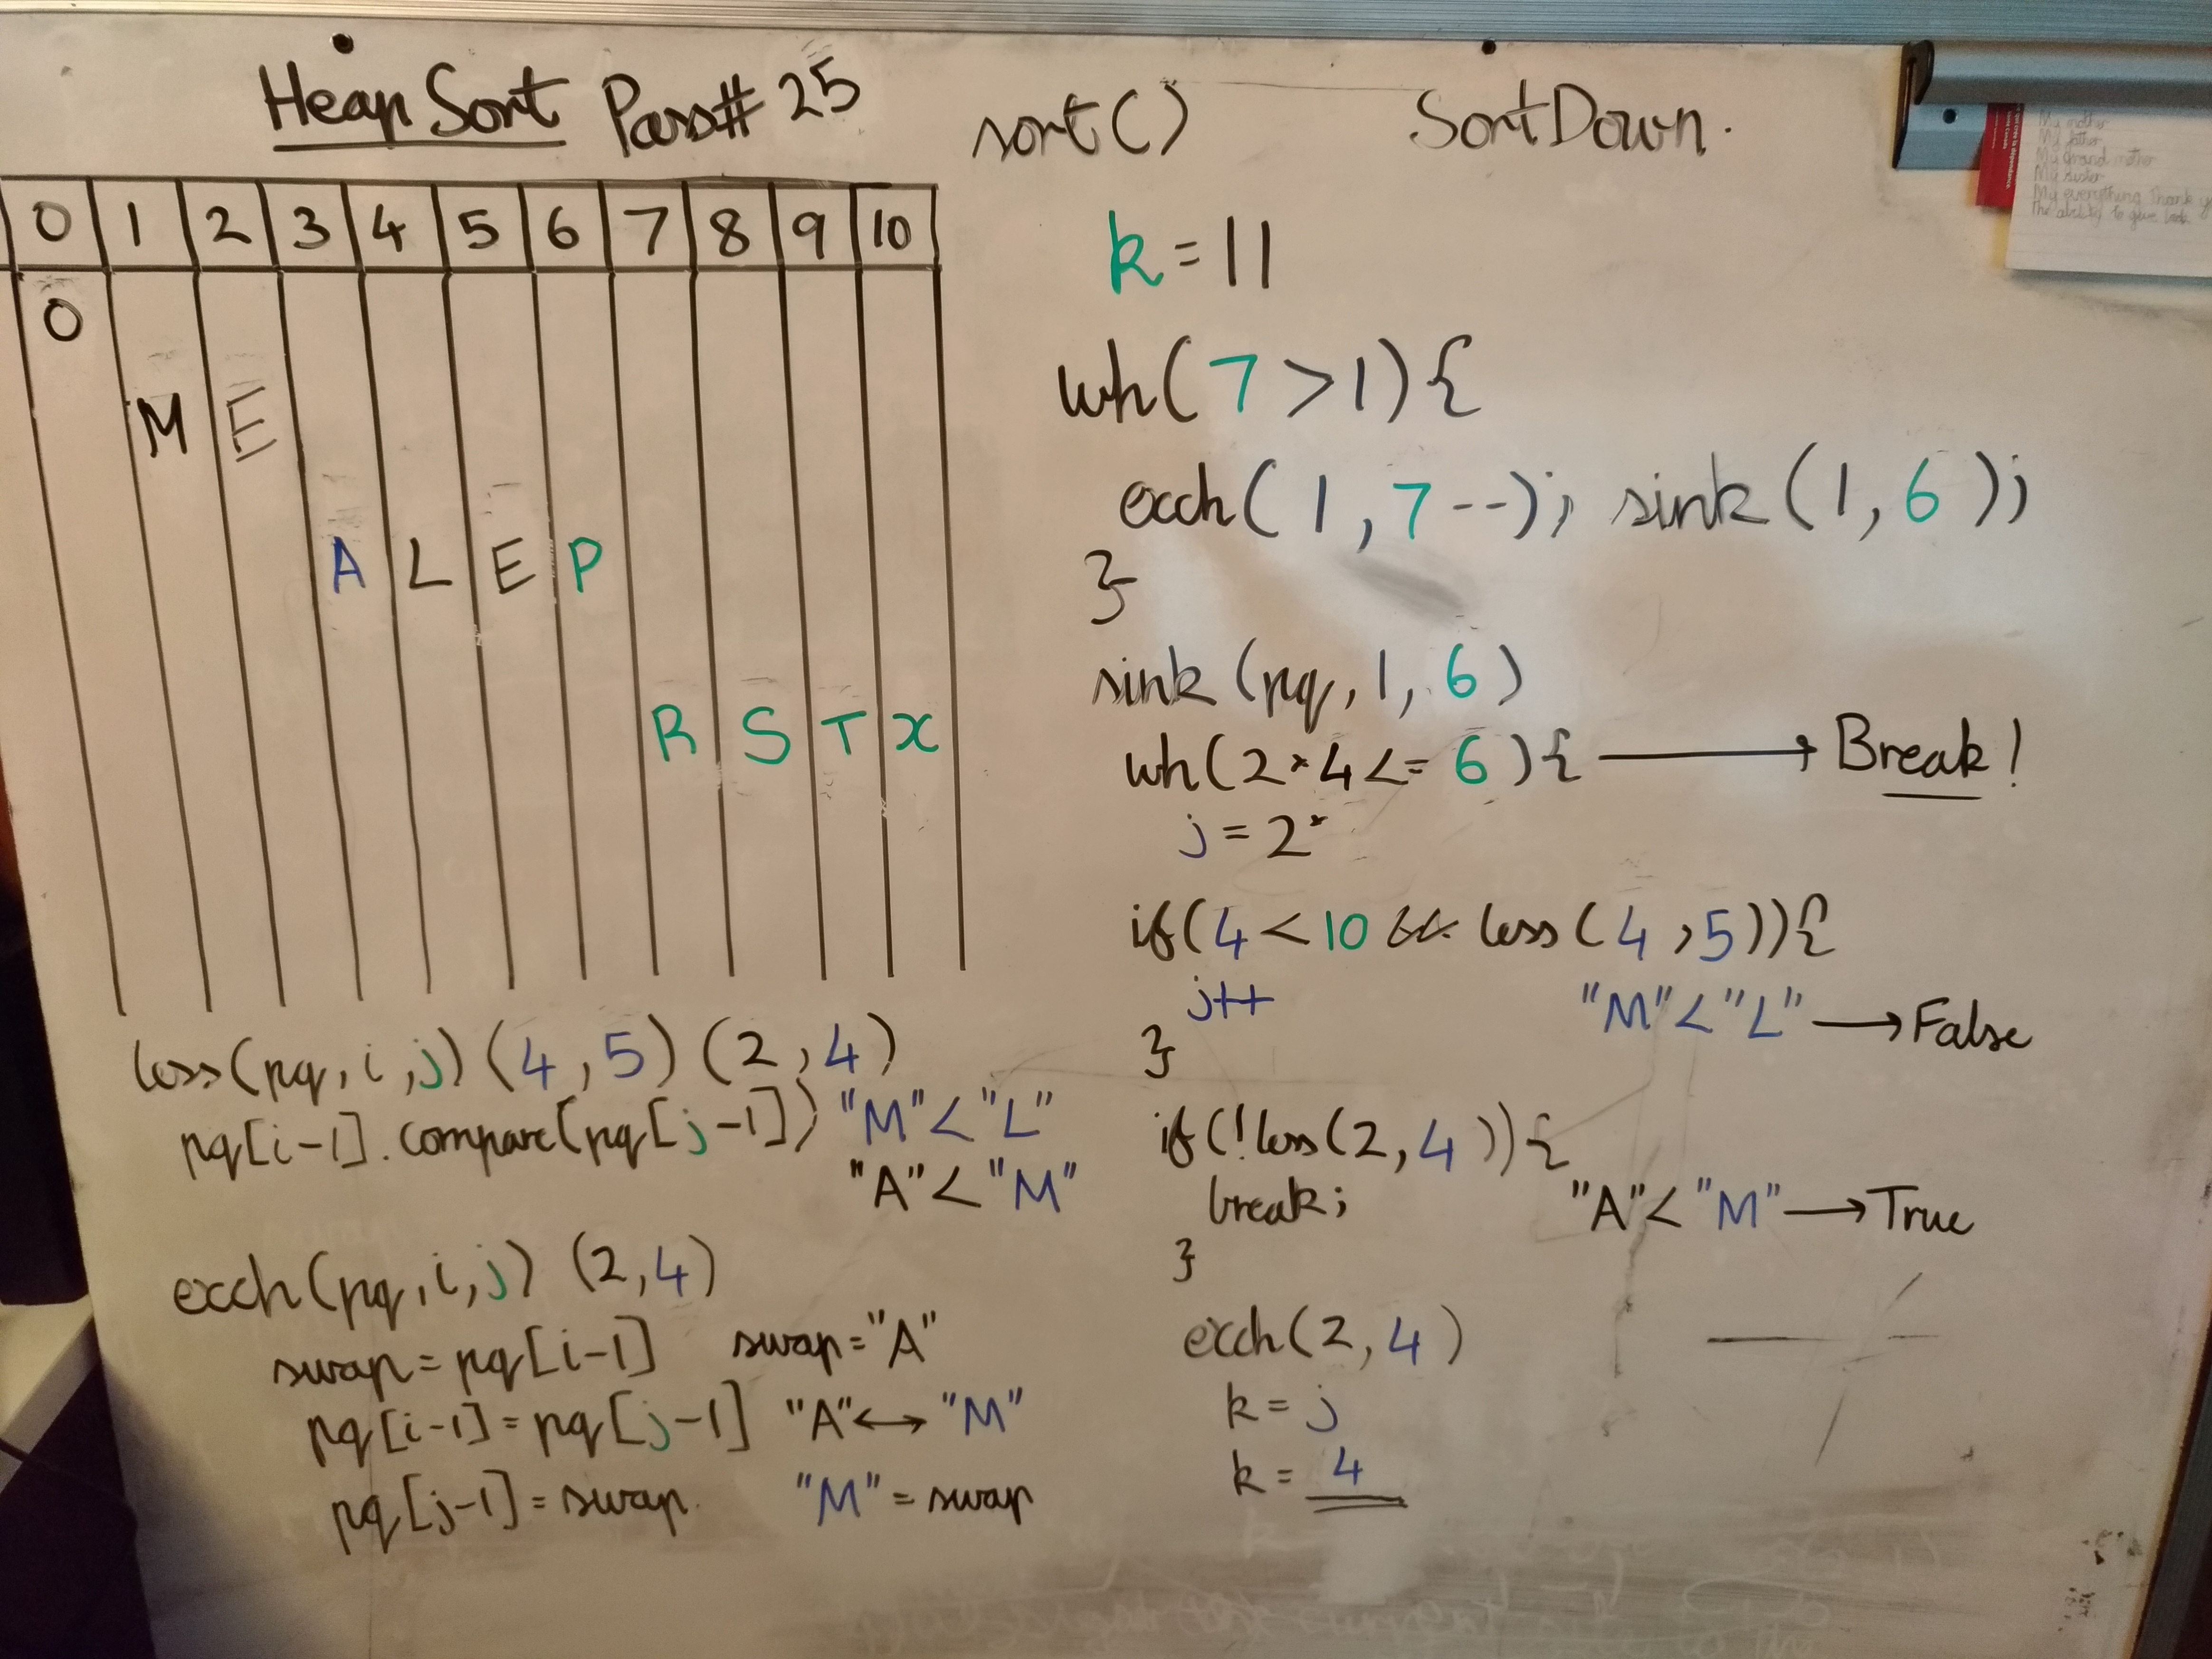 Heap Sort Pass# 25 sort() SortDown.
0 1 2 3 4 5 6 7 8 9 10
O
M E
A L E P
R S T X
k = 11
wh(7 > 1){
exch(1, 7--); sink(1, 6);
}
sink(pq, 1, 6)
wh(2*4 <= 6){ → Break!
j = 2*
if(4 < 10 && less(4, 5)){
j++ "M" < "L" → False
}
if(!less(2, 4)){
break; "A" < "M" → True
}
exch(2, 4)
k = j
k = 4
less(pq, i, j) (4, 5) (2, 4)
pq[i-1].compare(pq[j-1]) "M" < "L"
"A" < "M"
exch(pq, i, j) (2, 4)
swap = pq[i-1] swap = "A"
pq[i-1] = pq[j-1] "A" ↔ "M"
pq[j-1] = swap. "M" = swap
My mother
My father
My Grand mother
My sister
My everything Thank
The ability to give